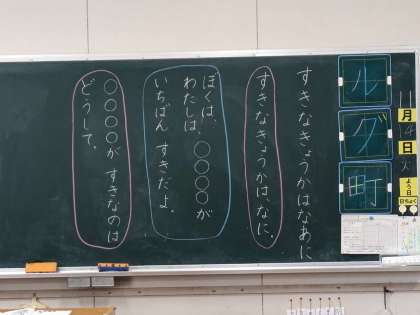 月
日
よう日
日ちょく
ル
グ
町
すきなきょうかはなあに
すきなきょうかは、なに。
ぼくは、
わたしは、○○○○が
いちばん すきだよ。
○○○○が すきなのは
どうして。